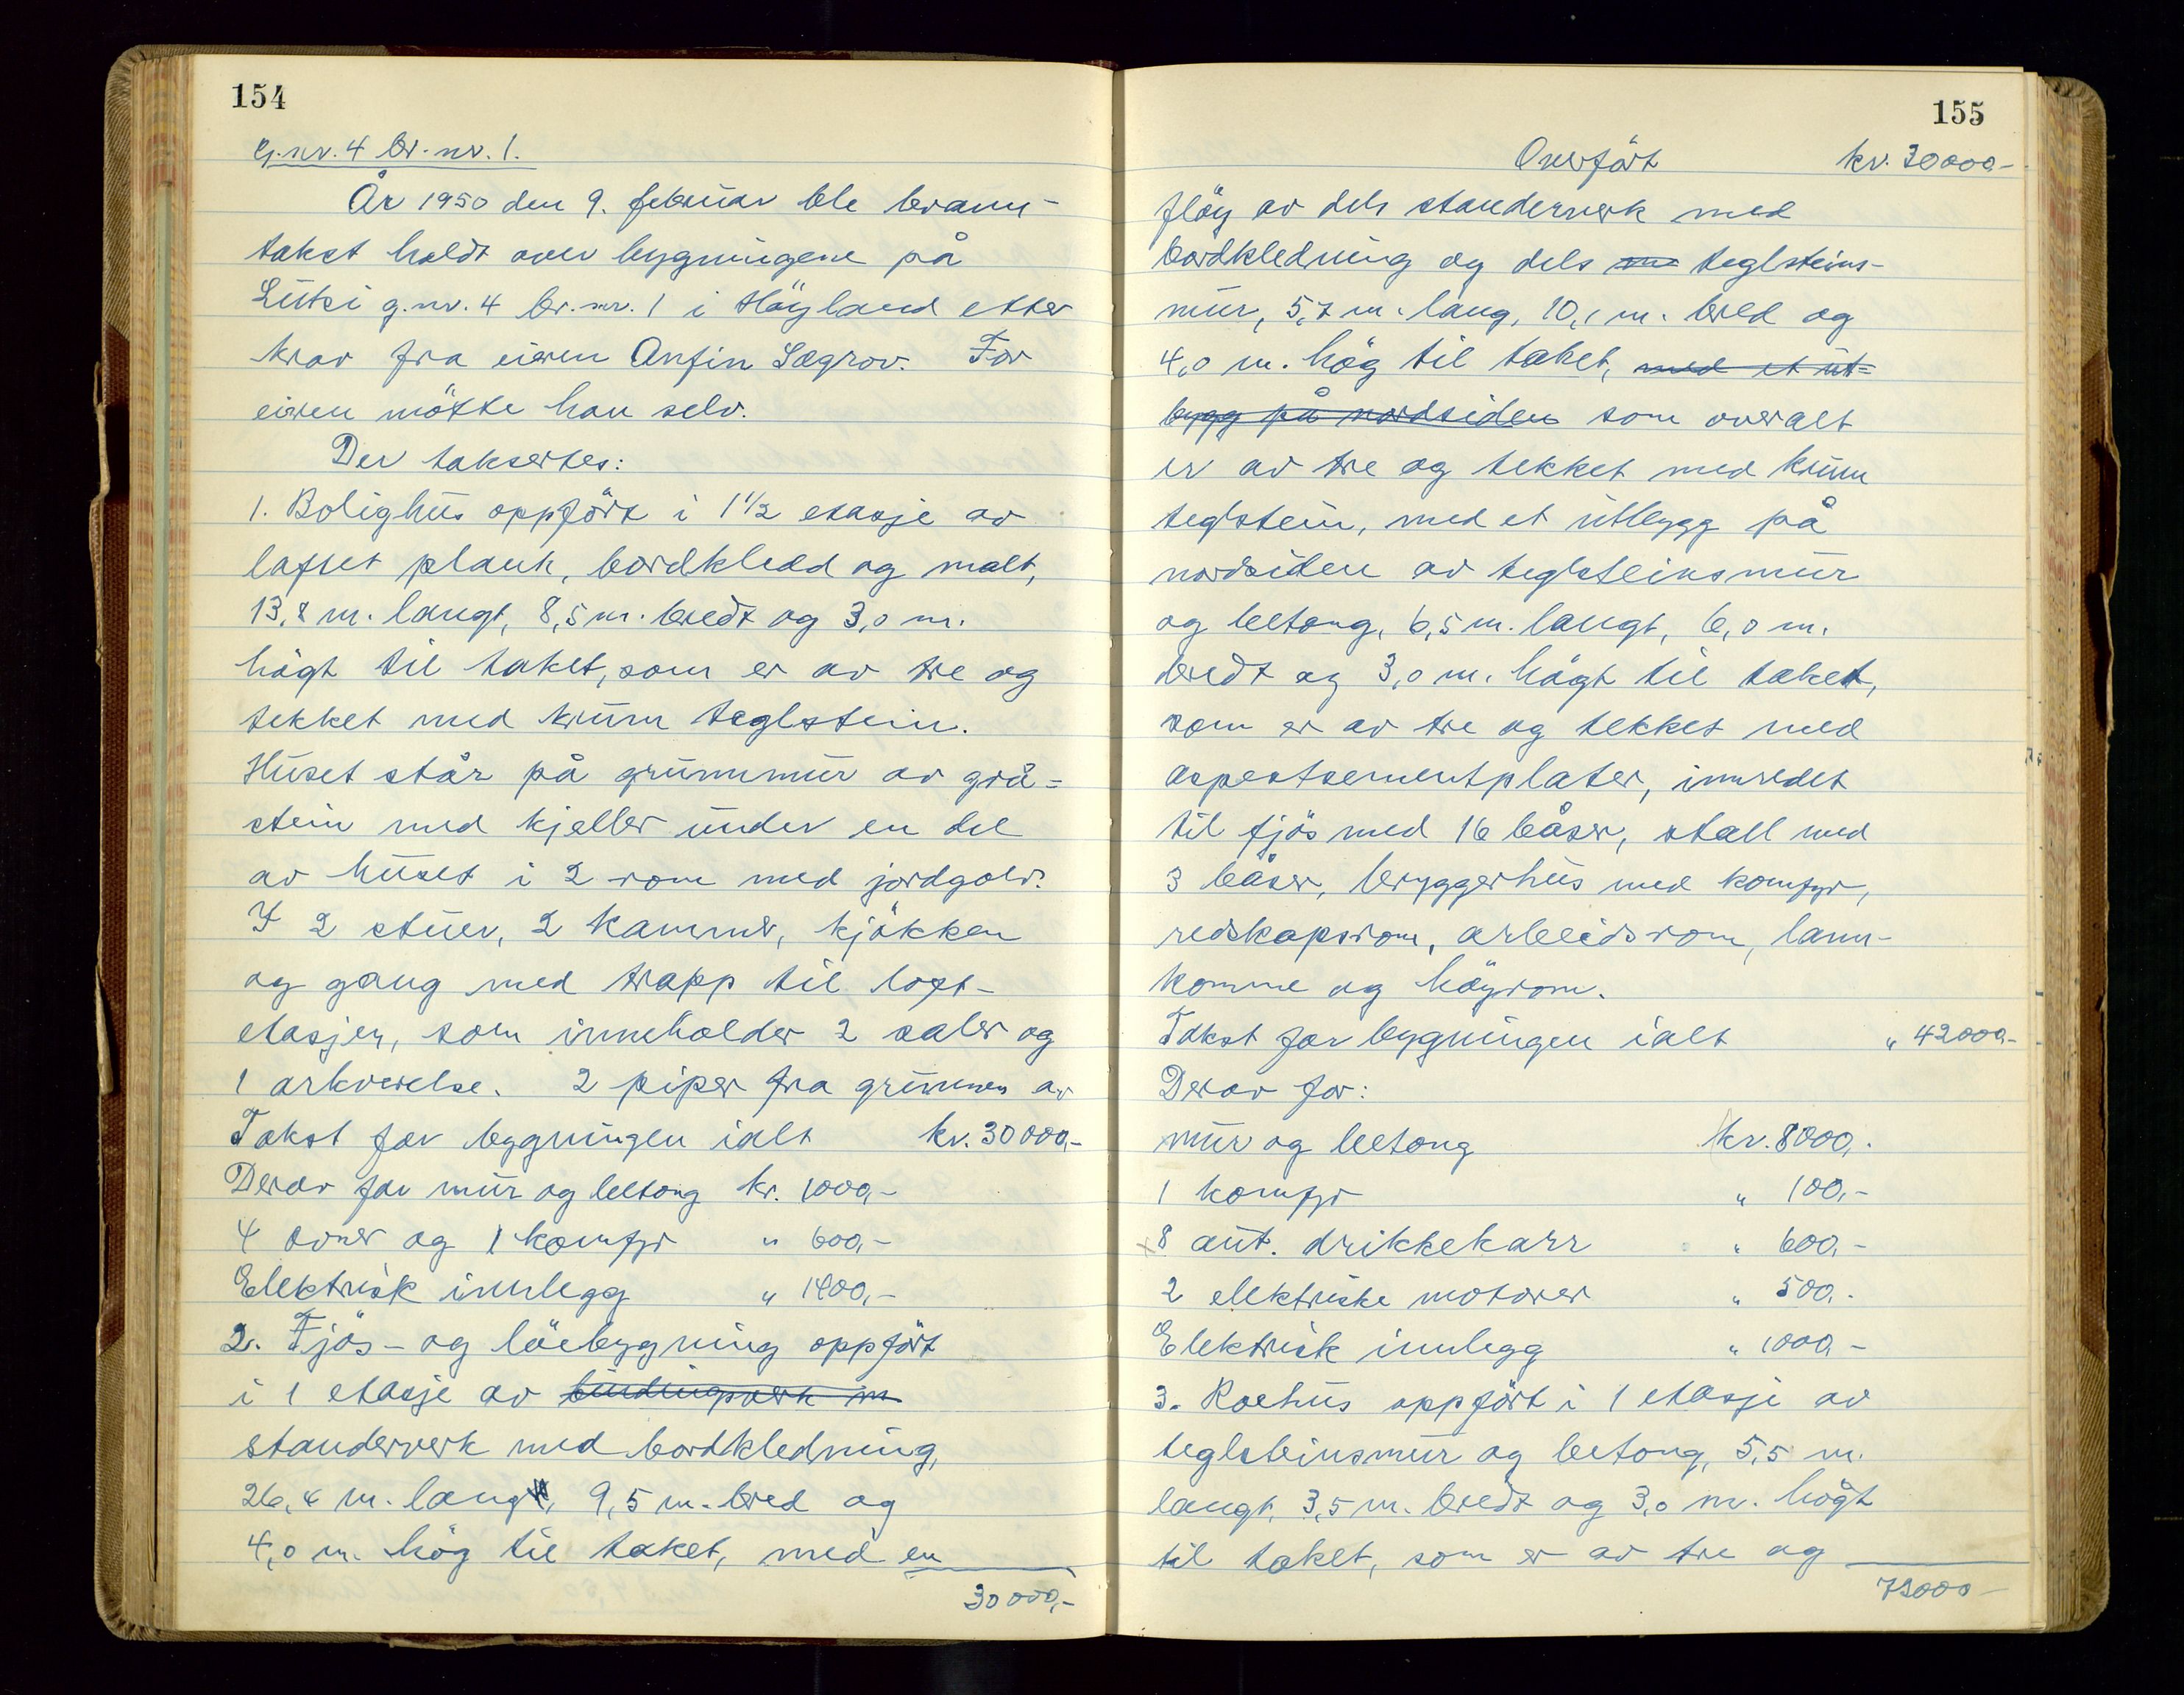 154
G.nr. 4 br.nr. 1.
År 1950 den 9. februar ble brann-
takst holdt over bygningene på
Lutsi g.nr. 4 br.nr. 1 i Höyland etter
krav fra eieren Anfin Lægrov. For
eieren mötte han selv.
Der taksertes:
1. Bolighus oppfört i 1 1/2 etasje av
laftet plank, bordkledd og malt,
13,8 m. langt, 8,5 m. bredt og 3,0 m.
högt til taket, som er av tre og
tekket med krum teglstein.
Huset står på grunnmur av grå=
stein med kjeller under en del
av huset i 2 rom med jordgolv.
I 2 stuer, 2 kammer, kjökken
og gang med trapp til loft-
etasjen, som inneholder 2 saler og
1 arkverelse. 2 piper fra grunnen av
Takst for bygningen ialt kr. 30000,-
Derav for mur og betong kr. 1000,-
4 ovner og 1 komfyr " 600,-
Elektrisk innlegg " 1400,-
2. Fjös- og löebygning oppfört
i 1 etasje av bindingsverk m
standerverk med bordkledning,
26,4 m. lang, 9,5 m. bred og
4,0 m. hög til taket, med en
30000,-
155
Overfört kr. 30000-
flöy av dels standerverk med
bordkledning og dels teglsteins-
mur, 5,7 m. lang, 10,1 m. bred og
4,0 m. hög til taket, med et ut=
bygg på nordsiden som overalt
er av tre og tekket med krum
teglstein, med et utbygg på
nordsiden av teglsteinsmur
og betong, 6,5 m. langt, 6,0 m.
bredt og 3,0 m. högt til taket,
som er av tre og tekket med
aspestsementplater, innredet
til fjös med 16 båser, stall med
3 båser, bryggerhus med komfyr,
redskapsrom, arbeidsrom, lann-
komme og höyrom.
Takst for bygningen ialt " 42000,-
Derav for:
mur og betong kr. 8000,-
1 komfyr " 100,-
8 aut. drikkekarr " 600,-
2 elektriske motorer " 500,-
Elektrisk innlegg " 1000,-
3. Roehus oppfört i 1 etasje av
teglsteinsmur og betong, 5,5 m.
langt, 3,5 m. bredt og 3,0 m. högt
til taket, som er av tre og
72000-